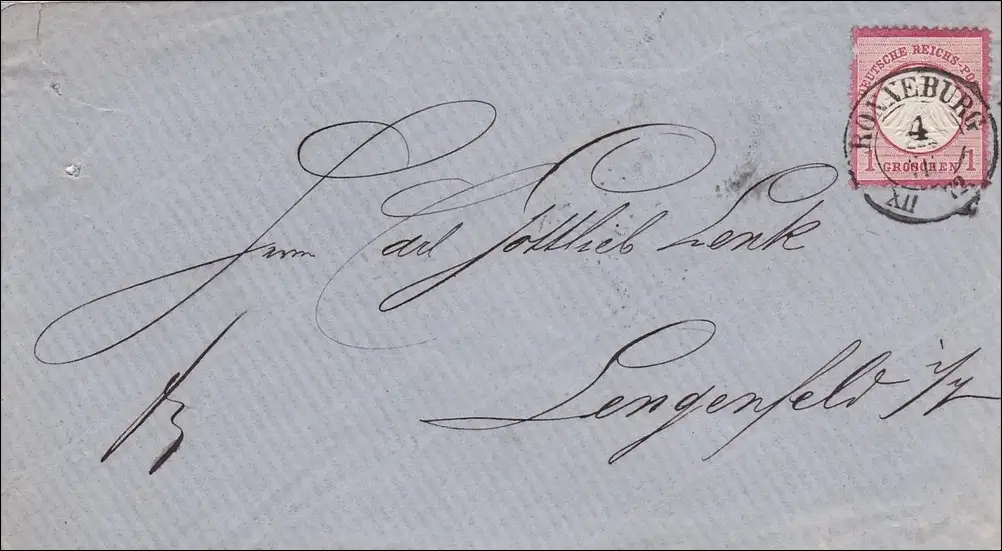 DEUTSCHE REICHS-PO
1 GROSCHEN 1
RONNEBURG
4
XII 72
Herrn Carl Gottlieb Lenk
Lengenfeld i/V